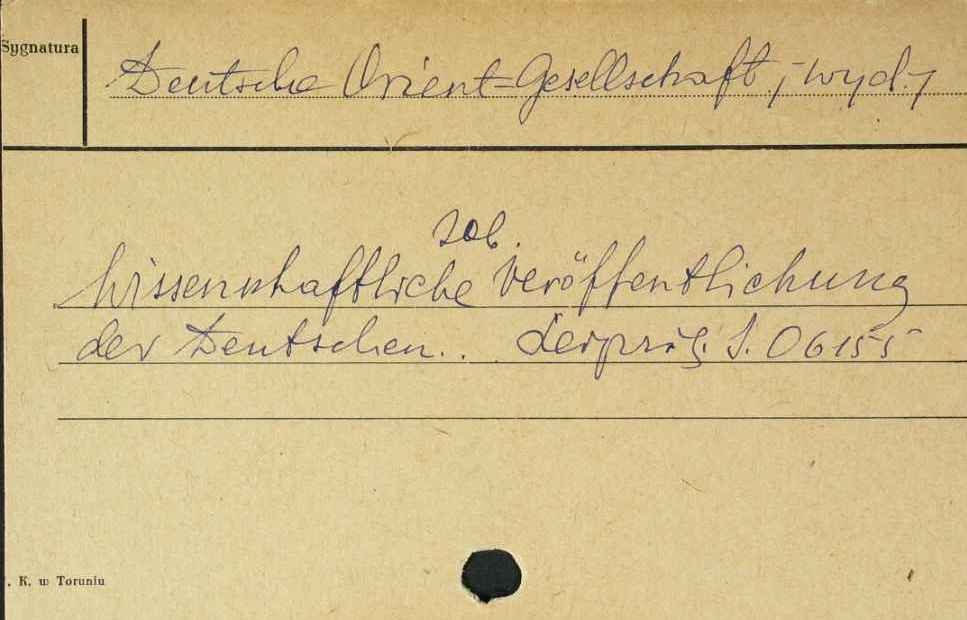 Sygnatura
Deutsche Orient-Gesellschaft, -wyd.-
zob.
Wissenschaftliche Veröffentlichung
der Deutschen.. Leipzig. S. 06155
. K. w Toruniu